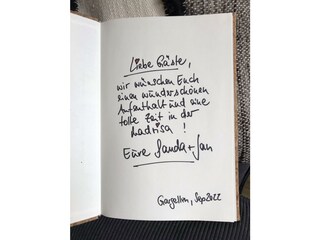 Liebe Gäste,
wir wünschen Euch
einen wunderschönen
Aufenthalt und eine
tolle Zeit in der
Madrisa !
Eure Sanda + Jan
Gargellen, Sep 2022